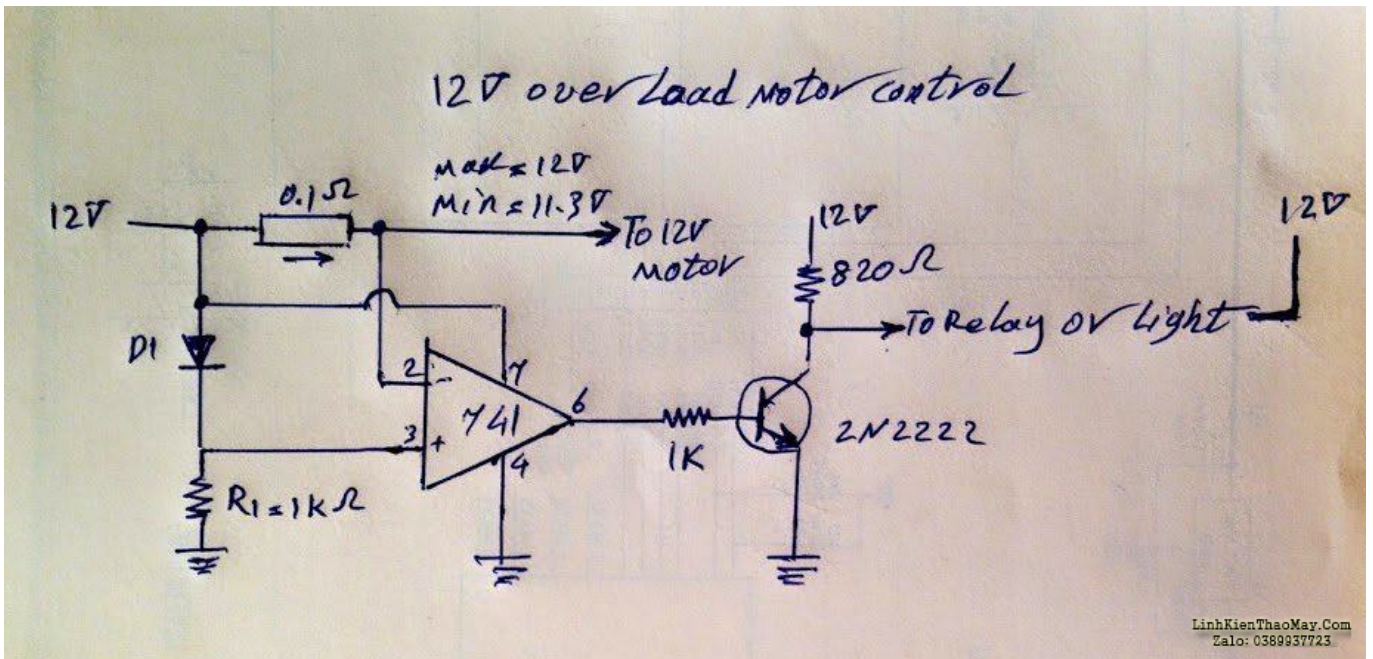 12V over Load Motor control
Max = 12V
Min = 11.3V
12V
0.1Ω
To 12V
Motor
12V
820Ω
12V
To Relay or Light
D1
2
-
7
741
6
3
+
4
1K
2N2222
R1 = 1KΩ
LinhKienThaoMay.Com
Zalo: 0389937723